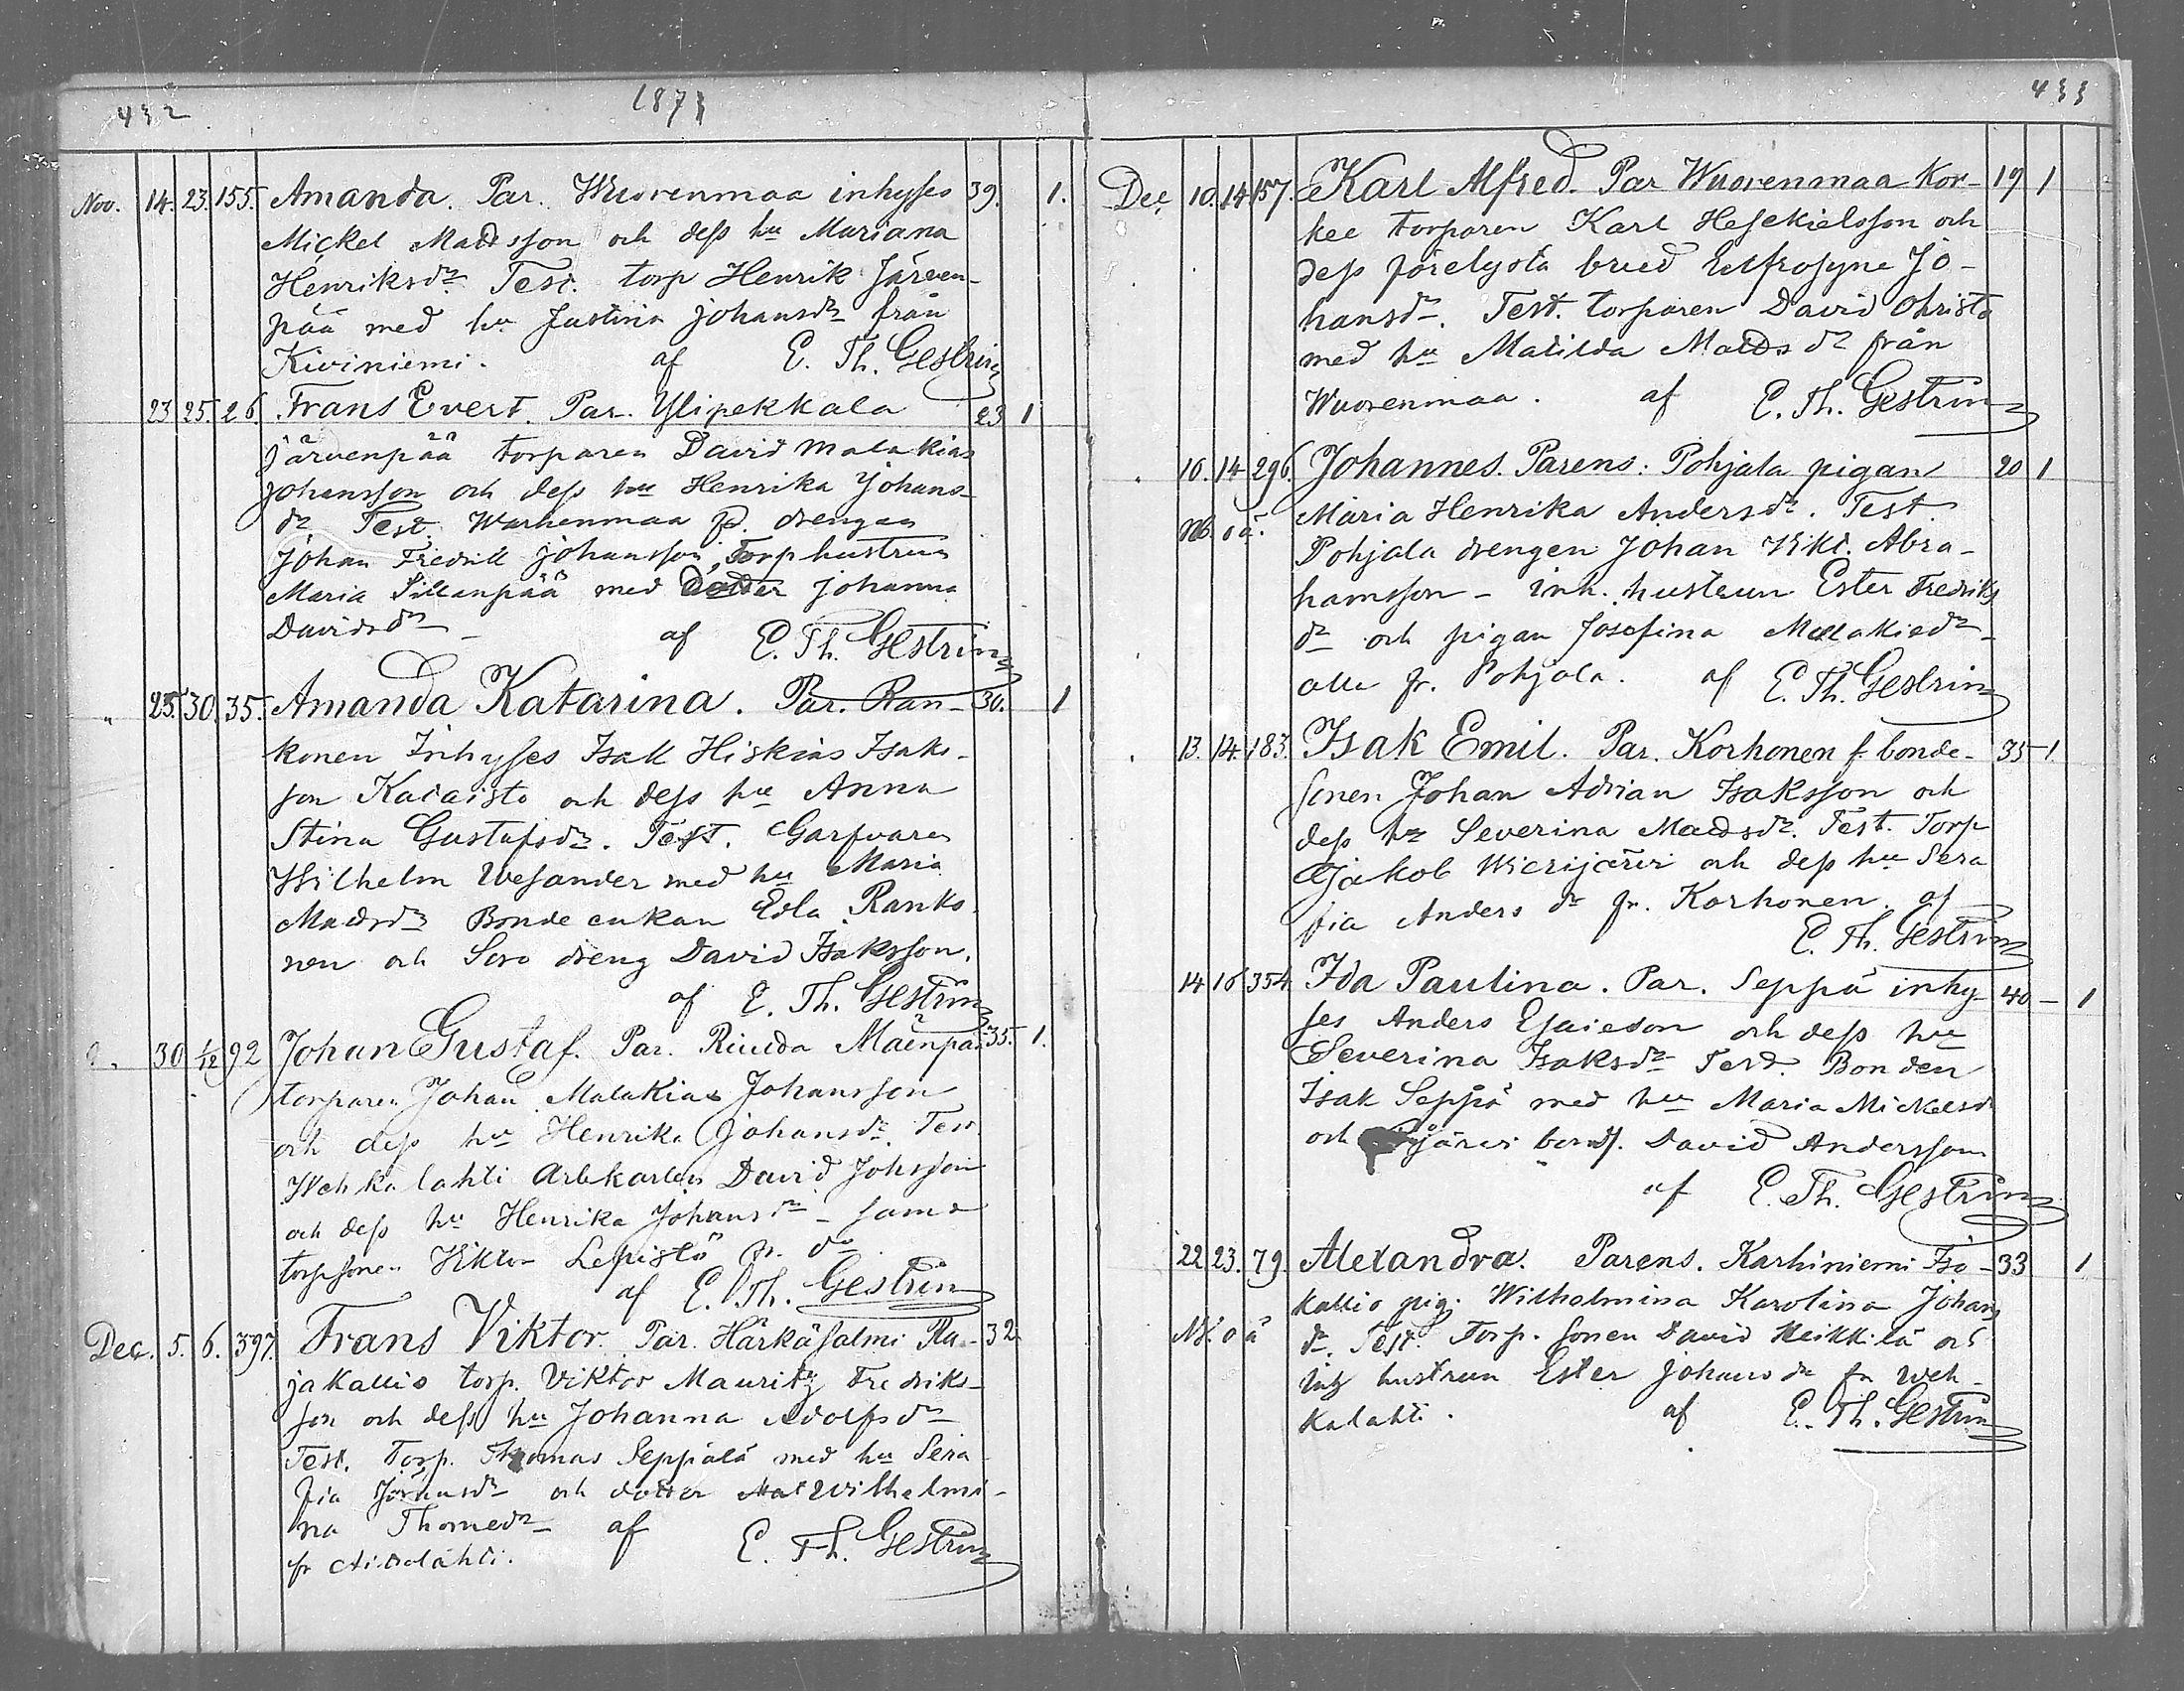 432
1873
Nov. 14. 23. 155. Amanda. Par. Wuorenmaa inhyses 39. 1.
Mickel Mattsson och dess hu Mariana
Henriksdr. Test. torp Henrik Järven-
pää med hu Justina Johansdr från
Kiviniemi. af E. Th. Gestrin
23 25. 26. Frans Evert. Par. Ylipekkala 23 1
Järvenpää torparen David Malakias
Johansson och dess hu Henrika Johans-
dr Test. drengen
Johan Fredrik Johansson, Torp hustrun
Maria Sillanpää med dotter Johanna
Davidsdr af E. Th. Gestrin
" 25. 30. 35. Amanda Katarina. Par. Ran- 30. 1
konen Inhyses Isak Hiskias Isaks-
son och dess hu Anna
Stina Gustafsdr. Test. Garfvaren
Wilhelm Wesander med hu Maria
Mattsdr Bonde enkan Eva Ranko-
nen och dreng David Isaksson.
af E. Th. Gestrin
30 1/12 92 Johan Gustaf. Par. Mäenpää 35. 1.
torparen Johan Malakias Johansson
och dess hu Henrika Johansdr. Test.
Wehkalahti Arbkarlen David Johsson
och dess hu Henrika Johansdr - samt
torpsonen Viktor Lepistö fr. do
af E. Th. Gestrin
Dec. 5. 6. 397. Frans Viktor. Par. Härkäsalmi Ra- 32
jakallio torp. Viktor Mauritz Fredriks-
son och dess hu Johanna Adolfsdr
Test. Torp. Thomas Seppälä med hu Sera-
fia Johansdr och dotter Wilhelmi-
na Thomedr af E. Th. Gestrin
fr
433
Dec. 10. 14 157. Karl Alfred. Par Wuorenmaa Kor- 19 1
kee torparen Karl Hesekielsson och
dess förelysta brud Eufrosyne Jo-
hansdr. Test. torparen David Ohristo
med hu Matilda Mattsdr från
Wuorenmaa. af E. Th. Gestrin
10. 14 296. Johannes. Parens: Pohjala pigan 20 1
Maria Henrika Andersdr. Test.
NB. oä.
Pohjala drengen Johan Vikt. Abra-
hamsson - inh. hustrun Ester Fredriks
dr och pigan Josefina Malakiedr
alla fr. Pohjala. af E. Th. Gestrin
13. 14. 183. Isak Emil. Par. Korhonen f. bonde- 35 1
sonen Johan Adrian Isaksson och
dess hu Severina Mattsdr. Test. Torp
Jakob och dess hu Sera
fia Anders dr fr. Korhonen. af
E. Th. Gestrin
14 16 354 Ida Paulina. Par. Seppä inhy- 40 - 1
ses Anders Esaieson och dess hu
Severina Isaksdr Test. Bonden
Isak Seppä med hu Maria Mickelsdr
och bonds. David Andersson
af E. Th. Gestrin
22 23. 79 Alexandra. Parens. Karhiniemi Iso- 33 1
kallio pig. Wilhelmina Karolina Johans
NB. o ä dr. Test. Torp. sonen David Heikkilä och
inh hustrun Ester Johansdr fr Weh-
kalahti. af E. Th. Gestrin